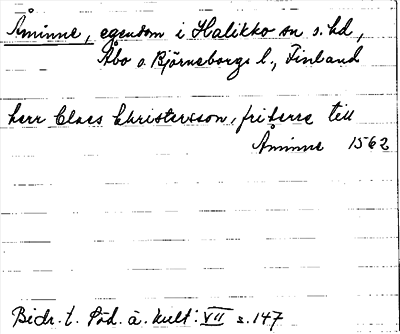 Åminne, egendom i Halikko sn s. hd,
Åbo o. Björneborgs l., Finland
herr Claes Christersson, friherre till
Åminne 1562
Bidr. t. Söd. ä. kult. VII s. 147